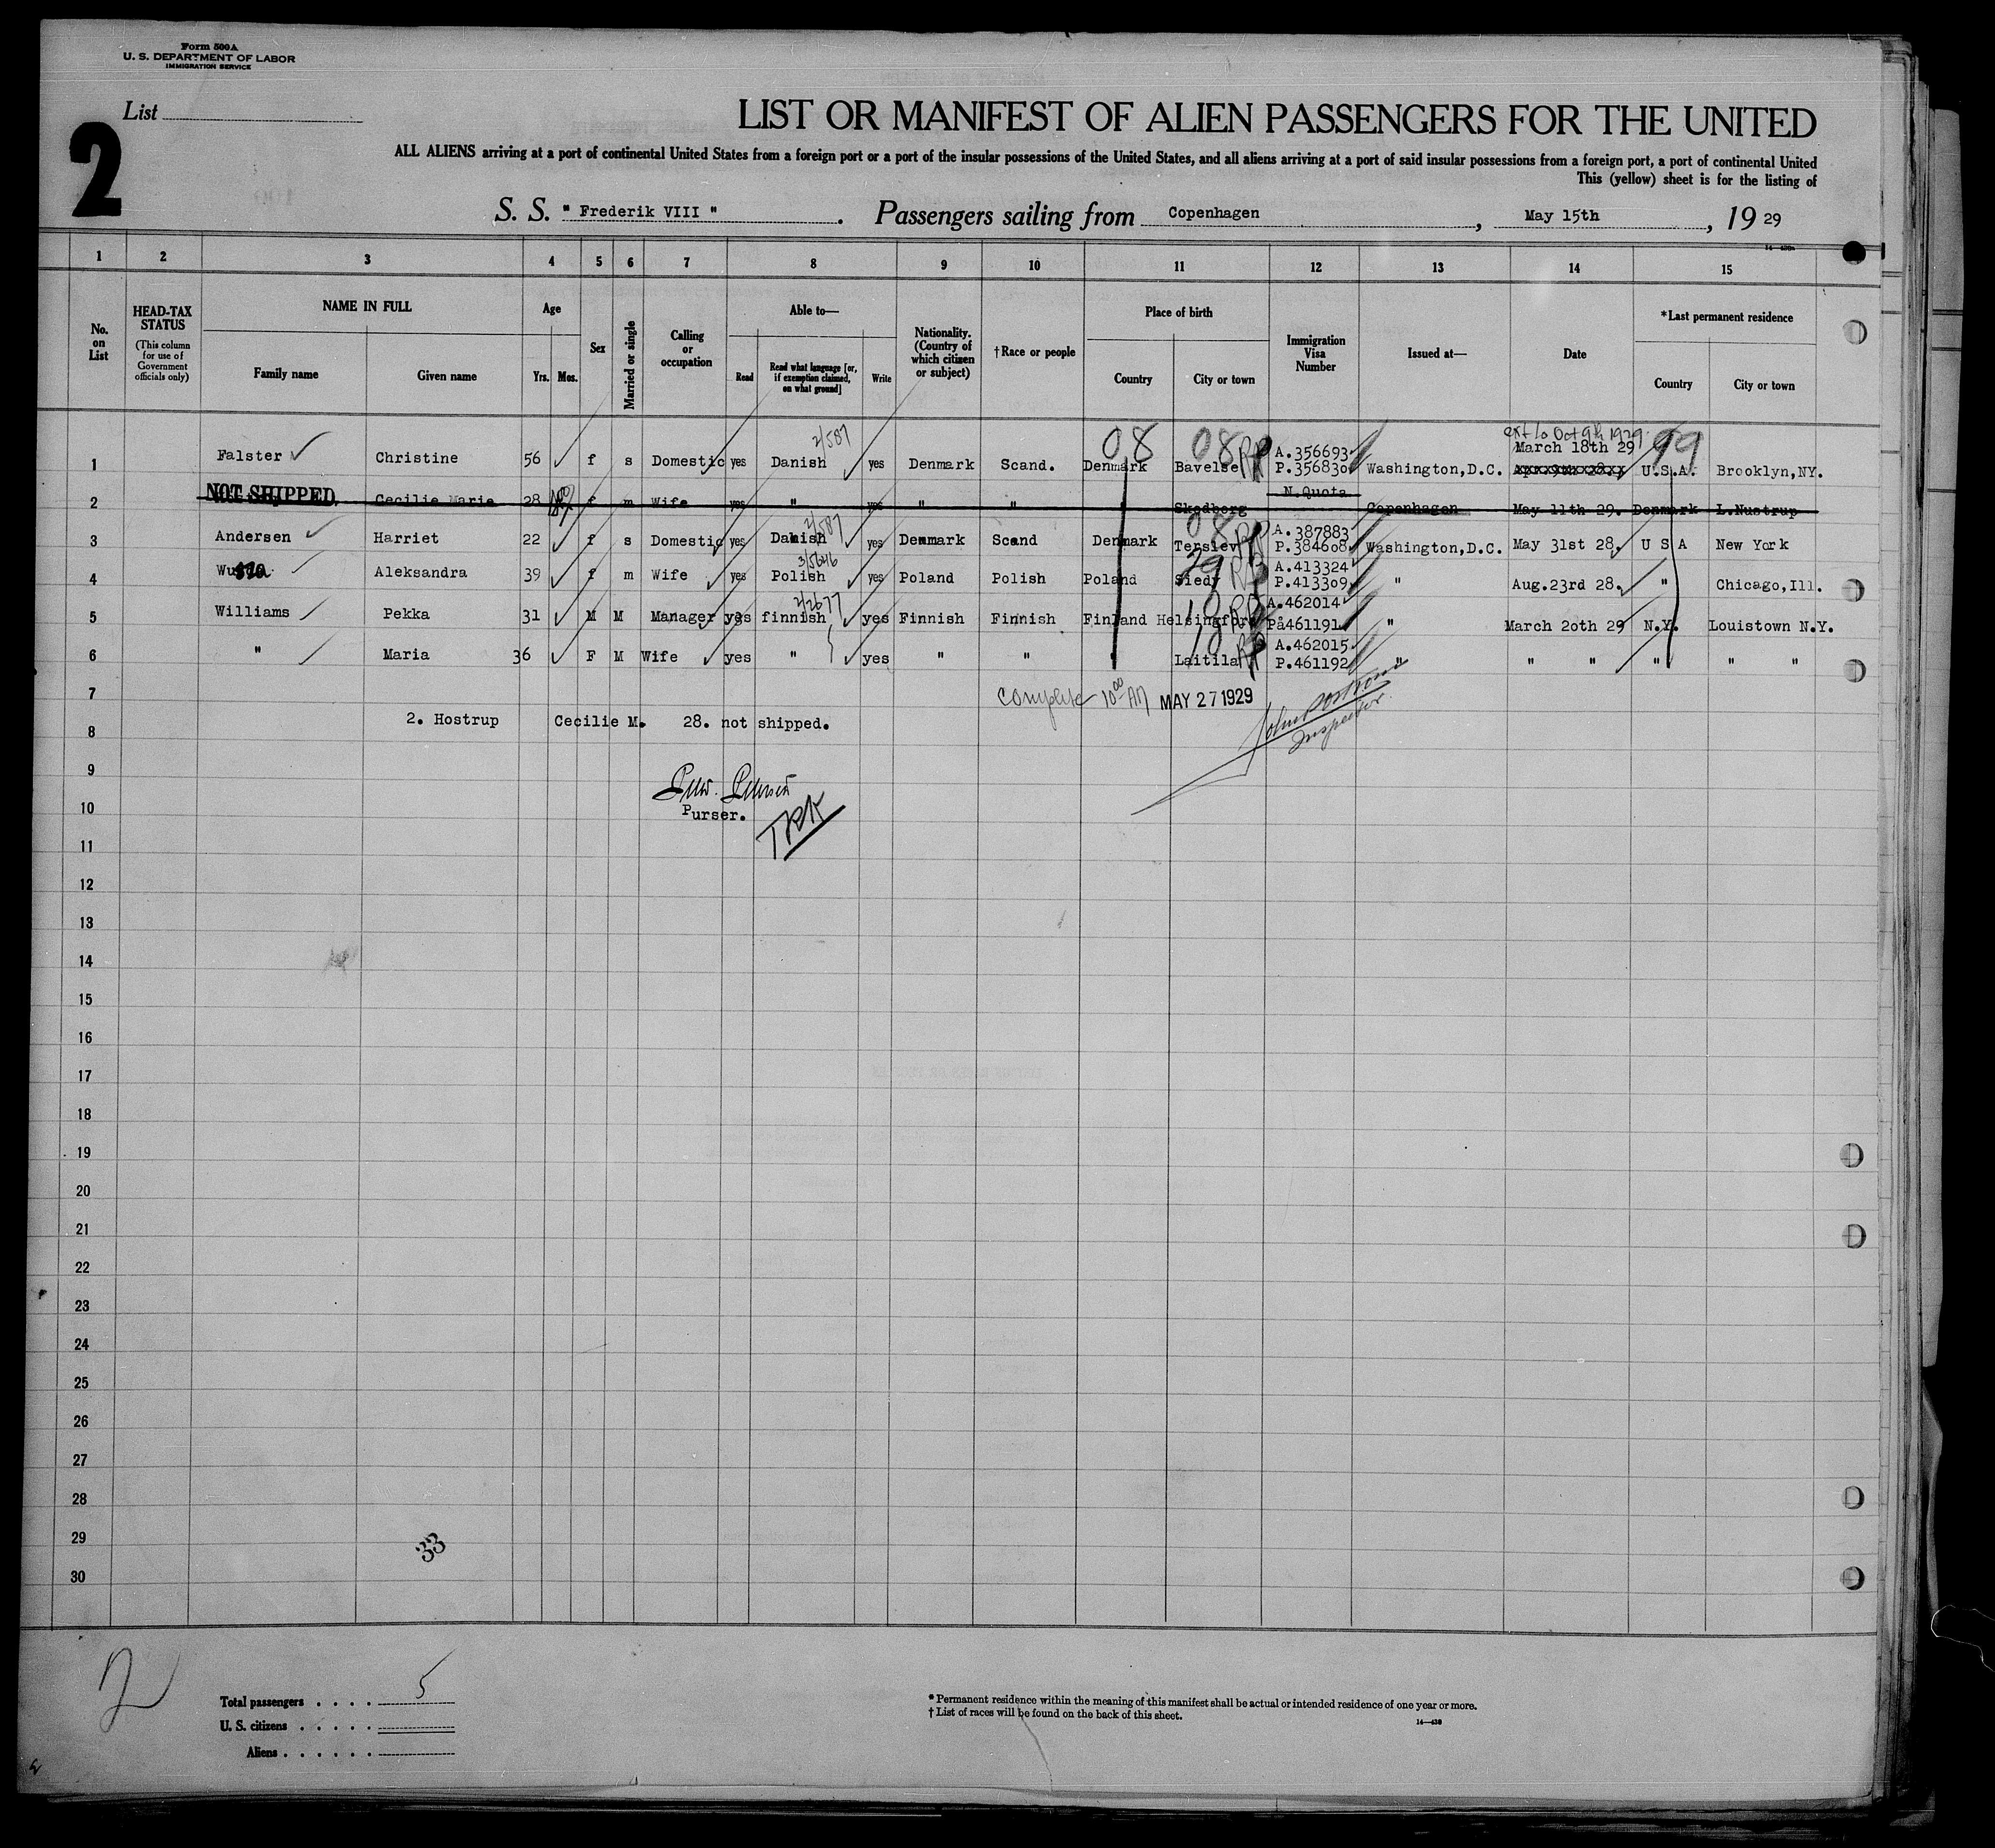 Form 500A
U. S. DEPARTMENT OF LABOR
IMMIGRATION SERVICE
List
2
LIST OR MANIFEST OF ALIEN PASSENGERS FOR THE UNITED
ALL ALIENS arriving at a port of continental United States from a foreign port or a port of the insular possessions of the United States, and all aliens arriving at a port of said insular possessions from a foreign port, a port of continental United
This (yellow) sheet is for the listing of
S. S. " Frederik VIII " . Passengers sailing from Copenhagen , May 15th , 19 29
1 2 3 4 5 6 7 8 9 10 11 12 13 14 15
No. on List
HEAD-TAX STATUS
(This column for use of Government officials only)
NAME IN FULL
Family name Given name
Age
Yrs. Mos.
Sex
Married or single
Calling or occupation
Able to—
Read
Read what language [or, if exemption claimed, on what ground]
Write
Nationality. (Country of which citizen or subject)
†Race or people
Place of birth
Country City or town
Immigration Visa Number
Issued at—
Date
*Last permanent residence
Country City or town
2/587 08 08 ext to Oct 9th 1929 99
1 Falster Christine 56 f s Domestic yes Danish yes Denmark Scand. Denmark Bavelse RP A.356693 P.356830 Washington,D.C. March 18th 29 U.S.A. Brooklyn,NY.
2 NOT SHIPPED Cecilie Marie 28 f m Wife yes " yes " " " Skodborg N.Quota Copenhagen May 11th 29. Denmark L.Nustrup
2/587 08
3 Andersen Harriet 22 f s Domestic yes Danish yes Denmark Scand Denmark Terslev RP A.387883 P.384608 Washington,D.C. May 31st 28. U S A New York
29
4 Aleksandra 39 f m Wife yes Polish yes Poland Polish Poland Siedy RP A.413324 P.413309 " Aug.23rd 28. " Chicago,Ill.
2/2677 10
5 Williams Pekka 31 M M Manager yes finnish yes Finnish Finnish Finland Helsingfors RP A.462014 På461191 " March 2oth 29 N.Y. Louistown N.Y.
10
6 " Maria 36 F M Wife yes " yes " " Laitila RP A.462015 P.461192 " " " " " "
7 Complete 10 00 AM MAY 27 1929
8 2. Hostrup Cecilie M. 28. not shipped.
Inspector.
9
10 Purser.
TRK
11
12
13
14
15
16
17
18
19
20
21
22
23
24
25
26
27
28
29
33
30
2
Total passengers . . . . 5
U. S. citizens . . . . .
Aliens . . . . . .
* Permanent residence within the meaning of this manifest shall be actual or intended residence of one year or more.
† List of races will be found on the back of this sheet.
14—430